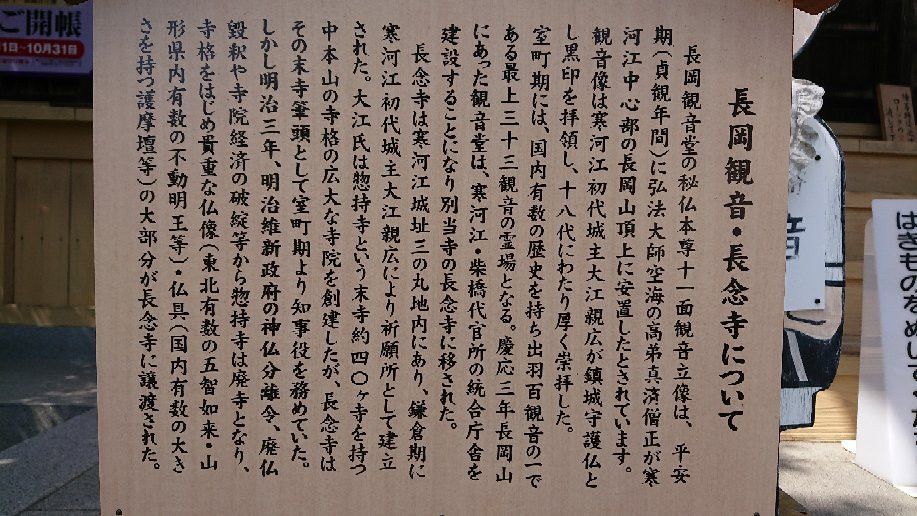 長岡観音・長念寺について
長岡観音堂の秘仏本尊十一面観音立像は、平安
期(貞観年間)に弘法大師空海の高弟真済僧正が寒
河江中心部の長岡山頂上に安置したとされています。
観音像は寒河江初代城主大江親広が鎮城守護仏と
し黒印を拝領し、十八代にわたり厚く崇拝した。
室町期には、国内有数の歴史を持ち出羽百観音の一で
ある最上三十三観音の霊場となる。慶応三年長岡山
にあった観音堂は、寒河江・柴橋代官所の統合庁舎を
建設することになり別当寺の長念寺に移された。
長念寺は寒河江城址三の丸地内にあり、鎌倉期に
寒河江初代城主大江親広により祈願所として建立
された。大江氏は惣持寺という末寺約四〇ヶ寺を持つ
中本山の寺格の広大な寺院を創建したが、長念寺は
その末寺筆頭として室町期より知事役を務めていた。
しかし明治三年、明治維新政府の神仏分離令、廃仏
毀釈や寺院経済の破綻等から惣持寺は廃寺となり、
寺格をはじめ貴重な仏像(東北有数の五智如来・山
形県内有数の不動明王等)・仏具(国内有数の大き
さを持つ護摩壇等)の大部分が長念寺に譲渡された。
ご開帳
1日〜10月31日
はきものをぬいで